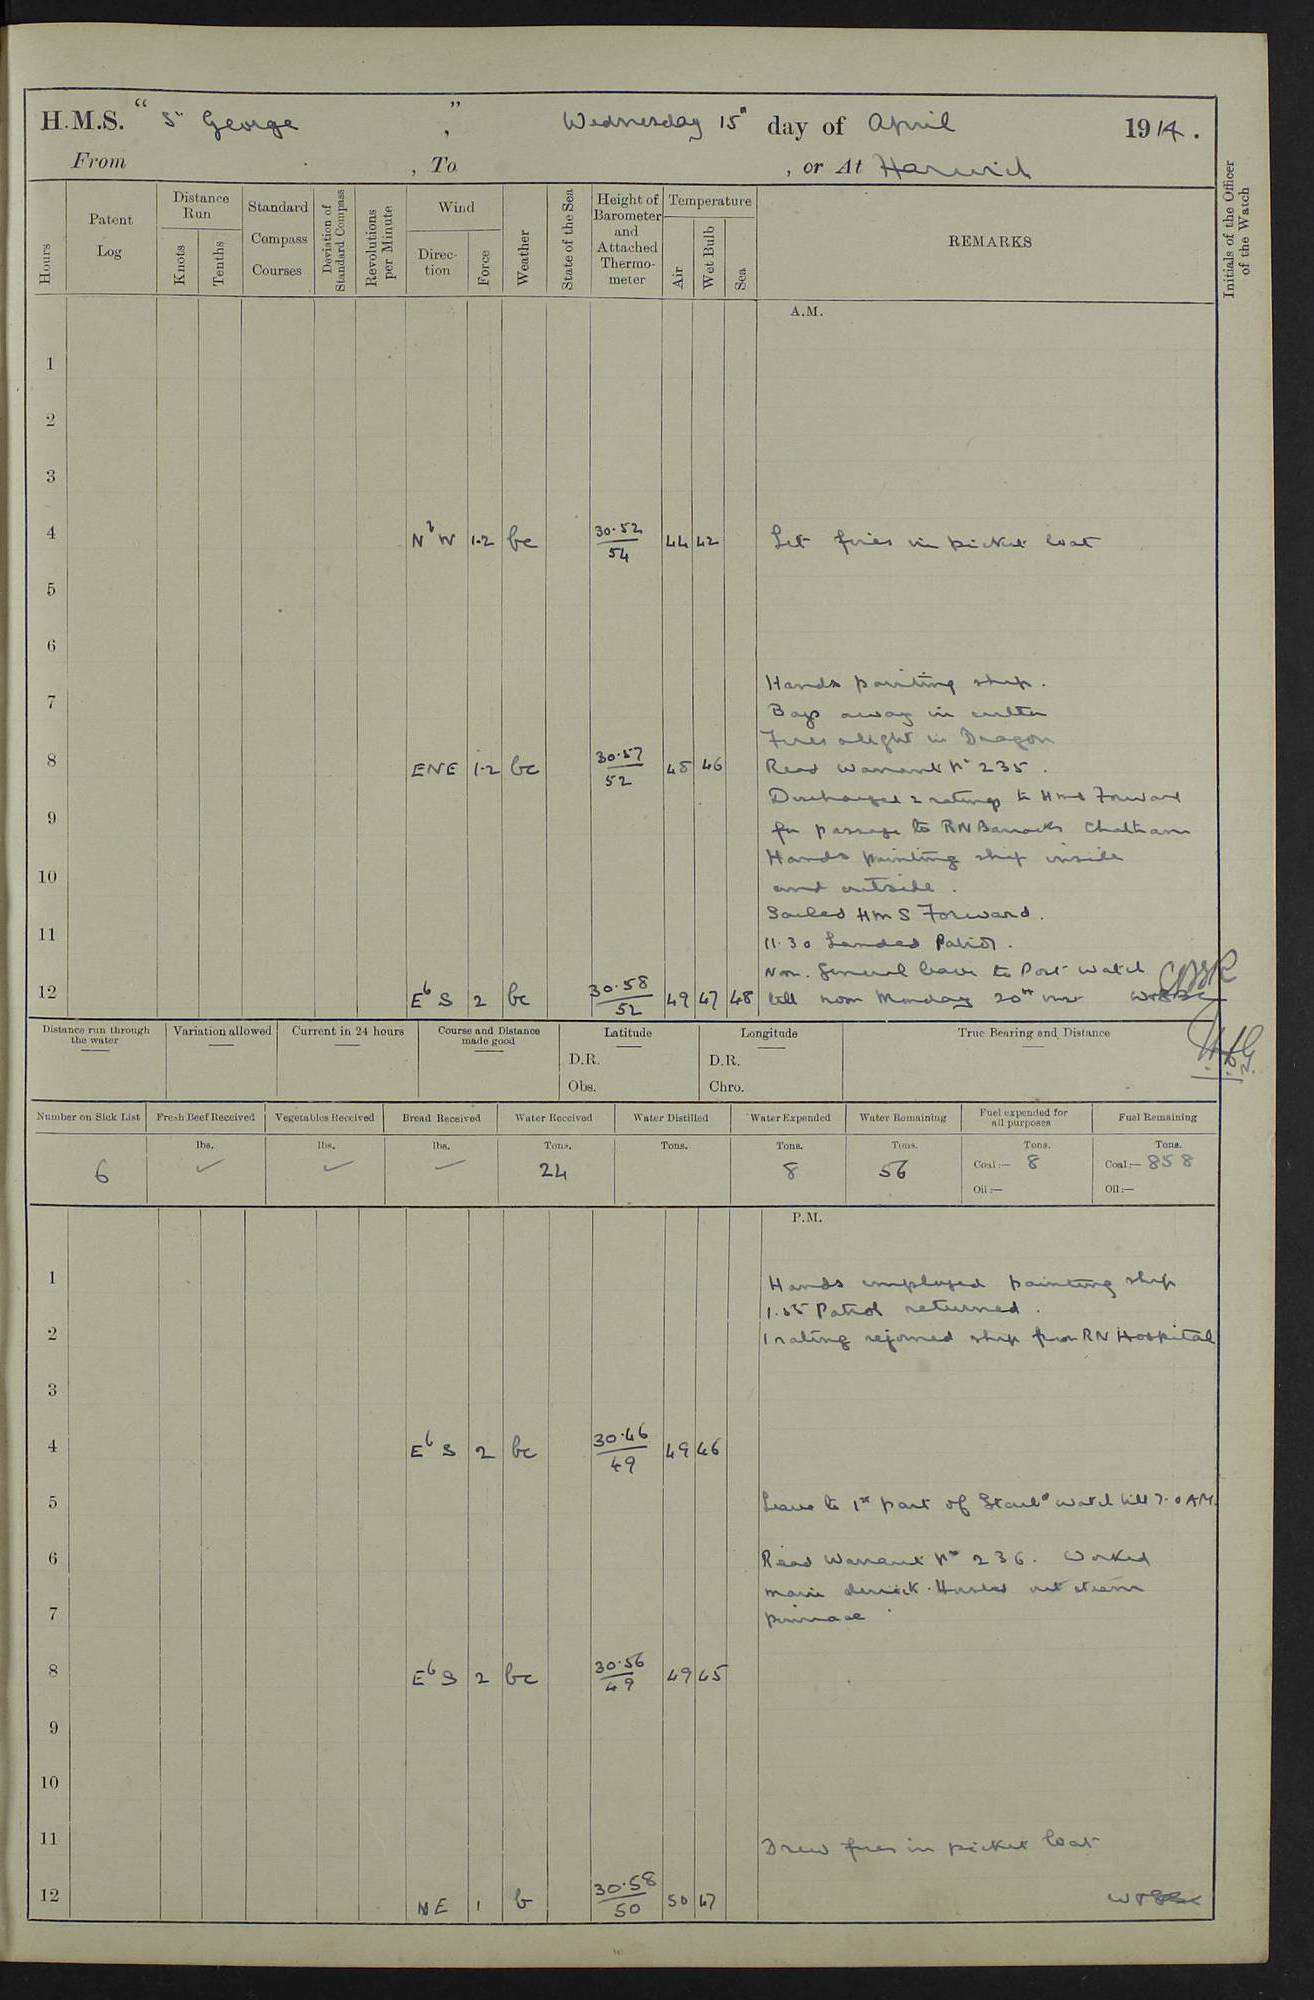 H.M.S. “ St George ” , Wednesday 15th day of April 1914.
From , To , or At Harwich
Hours
Patent Log
Distance Run
Knots
Tenths
Standard Compass Courses
Deviation of Standard Compass
Revolutions per Minute
Wind
Direction
Force
Weather
State of the Sea
Height of Barometer and Attached Thermometer
Temperature
Air
Wet Bulb
Sea
REMARKS
Initials of the Officer of the Watch
A.M.
1
2
3
4 N b W 1-2 bc 30.52/54 44 42 Lit fires in picket boat
5
6
Hands painting ship.
7
Boys away in cutter
Fires alight in Dragon
8 ENE 1-2 bc 30.57/52 48 46 Read Warrant No 235.
Discharged 2 ratings to HMS Forward
9
for passage to RN Barracks Chatham
Hands painting ship inside
10
and outside.
Sailed HMS Forward.
11
11.30 Landed Patrol.
Noon. General leave to Port Watch
12 E b S 2 bc 30.58/52 49 47 48 till noon Monday 20th inst
Distance run through the water
Variation allowed
Current in 24 hours
Course and Distance made good
Latitude
D.R.
Obs.
Longitude
D.R.
Chro.
True Bearing and Distance
Number on Sick List
Fresh Beef Received
Vegetables Received
Bread Received
Water Received
Water Distilled
Water Expended
Water Remaining
Fuel expended for all purposes
Fuel Remaining
lbs. lbs. lbs. Tons. Tons. Tons. Tons. Tons. Tons.
6 ✓ ✓ ✓ 24 8 56 Coal:— 8 Coal:— 858
Oil:— Oil:—
P.M.
1 Hands employed painting ship
1.55 Patrol returned.
2 1 rating rejoined ship from RN Hospital
3
4 E b S 2 bc 30.46/49 49 46
5 Leave to 1st part of Starbd watch till 7.0 AM.
6 Read Warrant No 236. Worked
main derrick. Hoisted out steam
7 pinnace.
8 E b S 2 bc 30.56/49 49 45
9
10
11 Drew fires in picket boat
12 NE 1 b 30.58/50 50 47